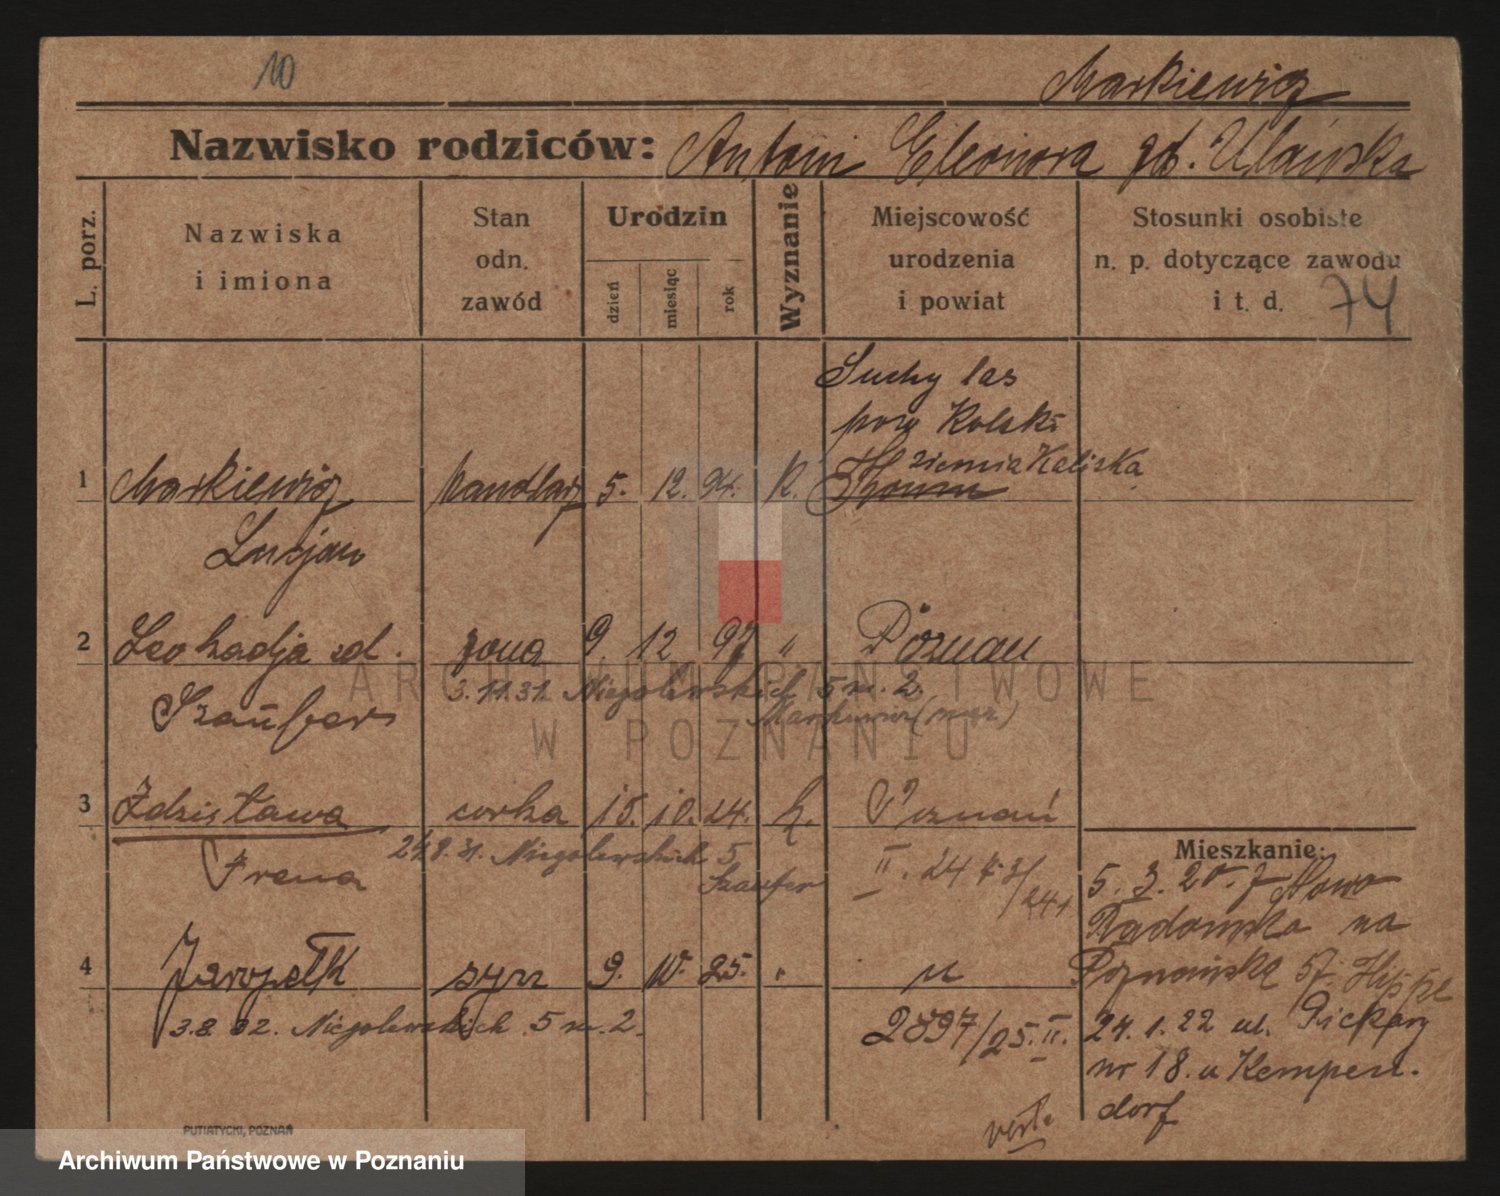 10
Markiewicz
Nazwisko rodziców: Antoni Eleonora gb. Ulańska
L. porz.
Nazwiska
i imiona
Stan
odn.
zawód
Urodzin
dzień
miesiąc
rok
Wyznanie
Miejscowość
urodzenia
i powiat
Stosunki osobiste
n. p. dotyczące zawodu
i t. d.
74
Suchy las
pow Kolski
ziemia Kaliska
1 Markiewicz handlarz 5. 12. 94. K.
Lucjan
2 Leokadja zd. żona 9. 12 97 " Poznan
Szaufer
3.11.31. Niegolewskich 5 m. 2.
Markiewicz (mąż)
3 Zdzisława corka 15. 10. 24. k. Poznań
Irena
24.8.31. Niegolewskich 5
Szaufer
II. 24
4 Jaropełk syn 9. 10. 25. " "
3.8.32. Niegolewskich 5 m. 2.
2897/25. II.
Mieszkanie:
5. 3. 20. z Nowo
Radomska na
Poznańską 57.
24. 1. 22 ul. Piekary
nr 18. u Kempen-
dorf
verte
PUTIATYCKI, POZNAŃ
ARCHIWUM PAŃSTWOWE
W POZNANIU
Archiwum Państwowe w Poznaniu